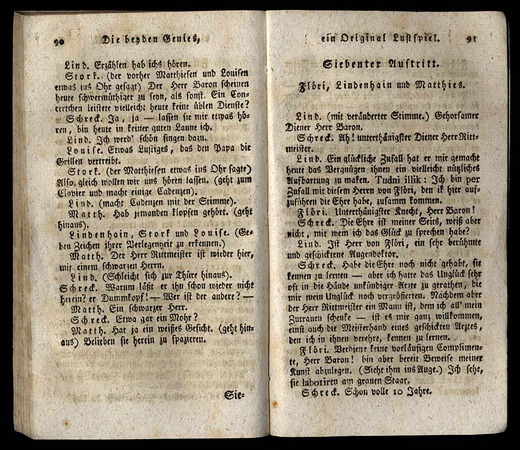 90 Die beyden Genies,
Lind. Erzählen hab ichs hören.
Stork. (der vorher Matthiesen und Louisen
etwas ins Ohr gesagt) Der Herr Baron scheinen
heute schwermüthiger zu seyn, als sonst. Ein Con-
certchen leistete vielleicht heute keine üblen Dienste?
Schreck. Ja, ja — lassen sie mir etwas hö-
ren, bin heute in keiner guten Laune ich.
Lind. Ich werd' schön singen dazu.
Louise. Etwas Lustiges, das den Papa die
Grillen vertreibt.
Stork. (der Matthiesen etwas ins Ohr sagte)
Also, gleich wollen wir uns hören lassen. (geht zum
Clavier und macht einige Cadenzen),
Lind. (macht Cadenzen mit der Stimme).
Matth. Hab jemanden klopfen gehört. (geht
hinaus).
Lindenhain, Stork und Louise. (Ge-
ben Zeichen ihrer Verlegenheit zu erkennen.)
Matth. Der Herr Rittmeister ist wieder hier,
mit einem schwarzen Herrn.
Lind. (Schleicht sich zur Thüre hinaus).
Schreck. Warum läßt er ihn schon wieder nicht
herein? er Dummkopf! — Wer ist der andere? —
Matth. Ein schwarzer Herr.
Schreck. Etwa gar ein Mohr?
Matth. Hat ja ein weißes Gesicht. (geht hin-
aus) Belieben sie herein zu spazieren.
Sie-
ein Original Lustspiel. 91
Siebenter Auftritt.
Flöri, Lindenhain und Matthies.
Lind. (mit veränderter Stimme.) Gehorsamer
Diener Herr Baron.
Schreck. Ah! unterthänigster Diener Herr Ritt-
meister.
Lind. Ein glücklicher Zufall hat er mir gemacht
heute das Vergnügen ihnen ein vielleicht nützliches
Aufwartung zu maken. Ich bin per
Zufall mit diesem Herrn von Flöri, den ik hier auf-
zuführen die Ehre habe, zusamm kommen.
Flöri. Unterthänigster Knecht, Herr Baron!
Schreck. Die Ehre ist meiner Seits, weiß aber
nicht, mit wem ich das Glück zu sprechen habe?
Lind. Ist Herr von Flöri, ein sehr berühmte
und geschickte Augendoktor.
Schreck. Habe die Ehre noch nicht gehabt, sie
kennen zu lernen — aber ich hatte das Unglück sehr
oft in die Hände unkündiger Aerzte zu gerathen, die
mir mein Unglück noch vergrößerten. Nachdem aber
der Herr Rittmeister ein Mann ist, dem ich all' mein
Zutrauen schenke — ist es mir ganz willkommen,
einst auch die Meisterhand eines geschickten Arztes,
den ich in ihnen verehre, kennen zu lernen.
Flöri. Verdiene keine vorläufigen Complimen-
te, Herr Baron! bin aber bereit Beweise meiner
Kunst abzulegen. (Sieht ihm ins Auge.) Ich sehe,
sie laboriren am grauen Staar.
Schreck. Schon volle 10 Jahre.